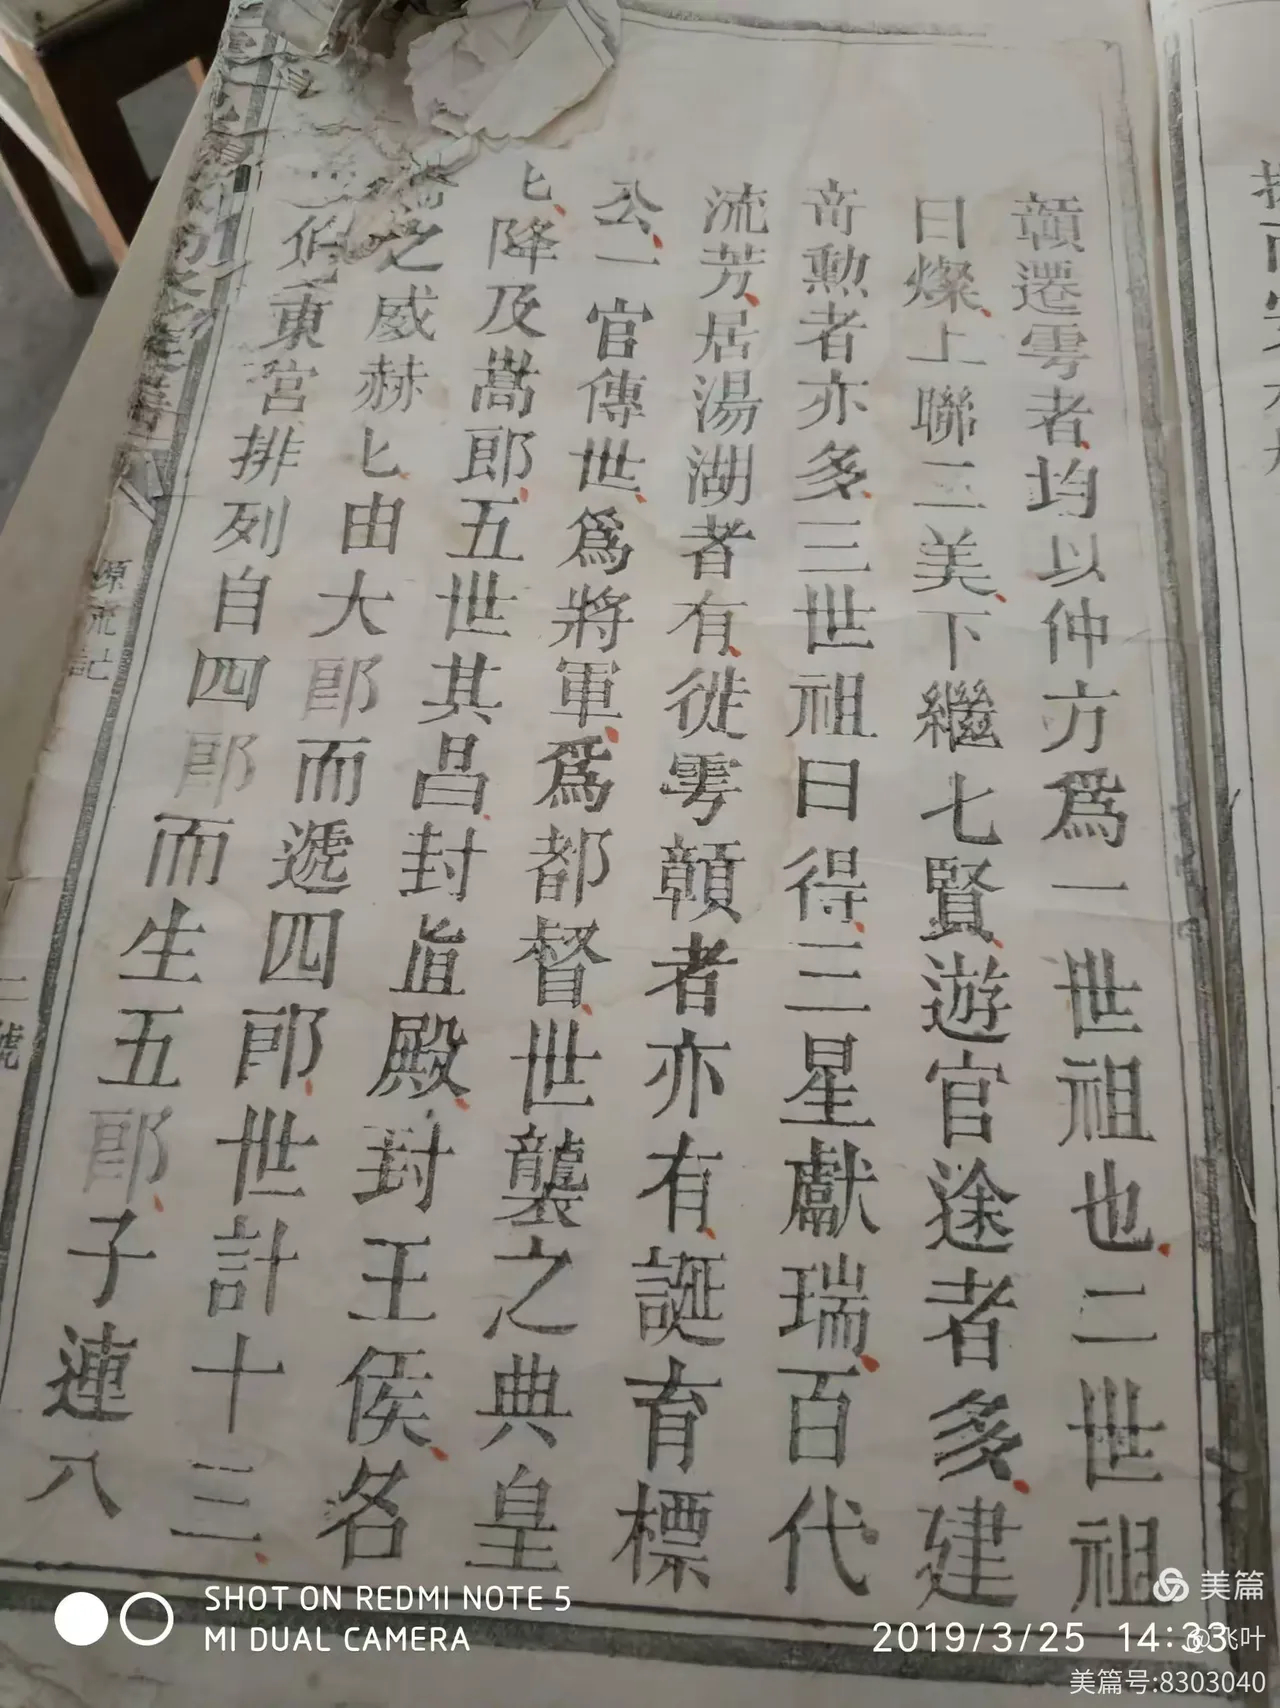 贛遷雩者均以仲方爲一世祖也二世祖
曰燦上聯三美下繼七賢遊官途者多建
奇勳者亦多三世祖曰得三星獻瑞百代
流芳居湯湖者有徙雩贛者亦有誕育標
公一官傳世爲將軍爲都督世襲之典皇
匕降及嵩郎五世其昌封直殿封王侯名
之威赫匕由大郎而遞四郎世計十三
東宮排列自四郎而生五郎子連八
源流記
二號
SHOT ON REDMI NOTE 5
MI DUAL CAMERA
2019/3/25 14:33
美篇
@飞叶
美篇号:8303040